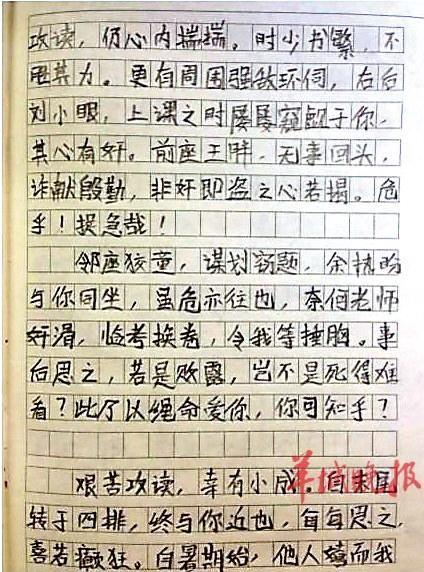 攻读，仍心内揣揣。时少书繁，不
胜其力。更有周围强敌环伺，右后
刘小眼，上课之时屡屡窥觎于你，
其心有奸。前座王胖，无事回头，
诈献殷勤，非奸即盗之心若揭。危
乎！捉急哉！
邻座狡童，谋划窃题，余拔
与你同坐，虽危亦往也，奈何老师
奸滑，临考换卷，令我等捶胸。事
后思之，若是败露，岂不是死得难
看？此乃以绳命爱你，你可知乎？
艰苦攻读，幸有小成。自末尾
转于四排，终与你近也，每每思之，
喜若癫狂。自暑期始，他人嬉而我
羊城晚报